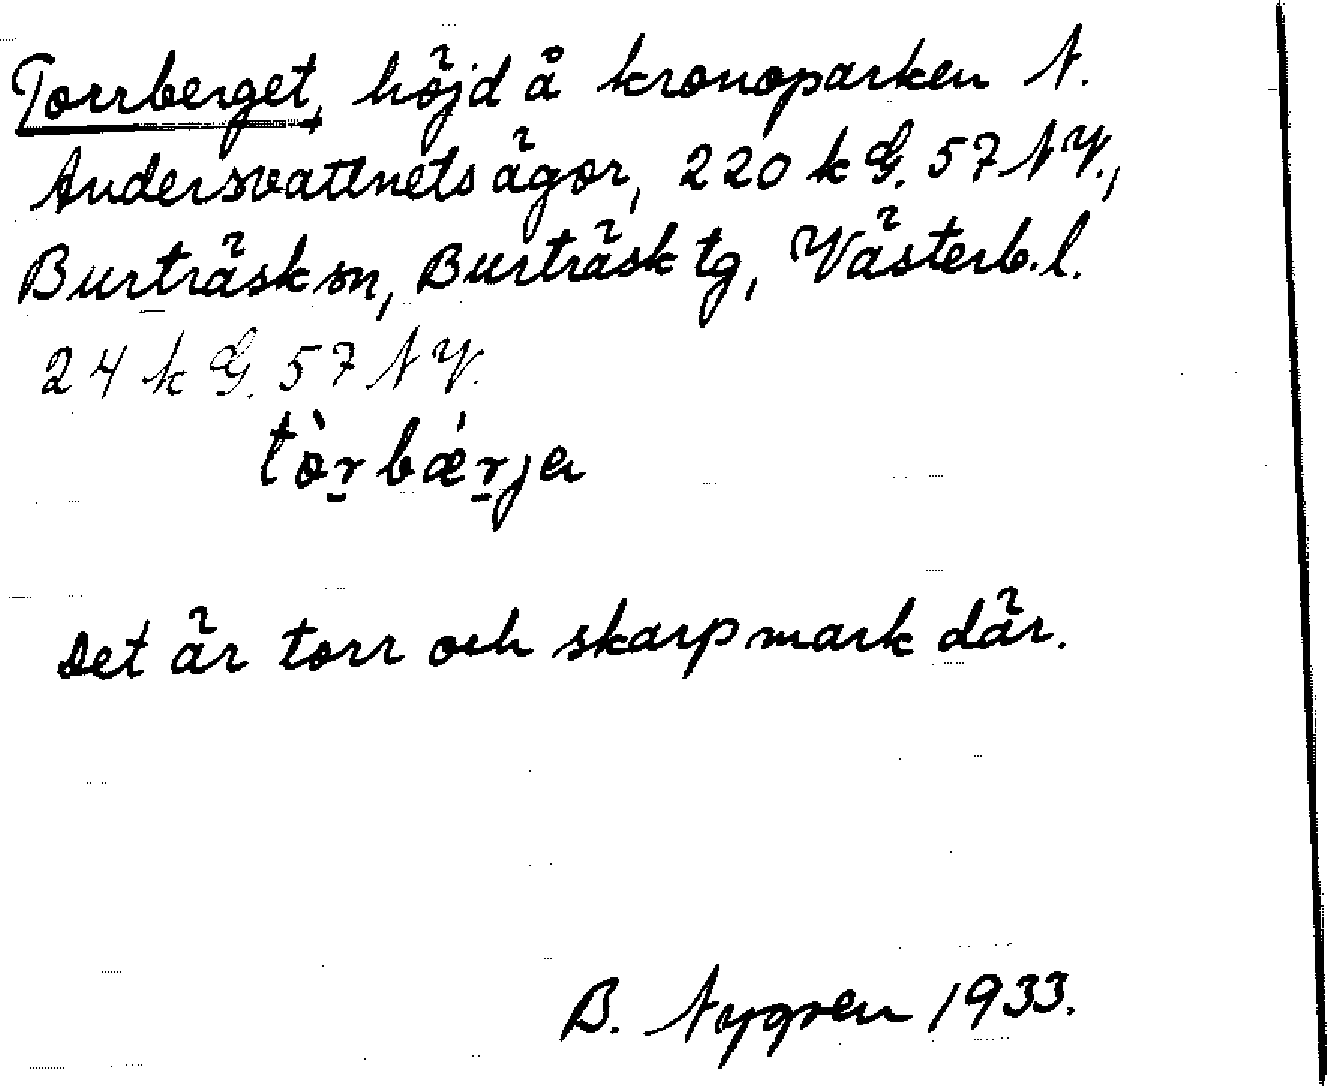 Torrberget, höjd å kronoparken N.
Andersvattnets ägor, 220 k G. 57 NV.,
Burträsk sn, Burträsk tg, Västerb. l.
24 k G. 57 NV.
tòr̲bǽr̲ja
Det är torr och skarp mark där.
B. Nygren 1933.